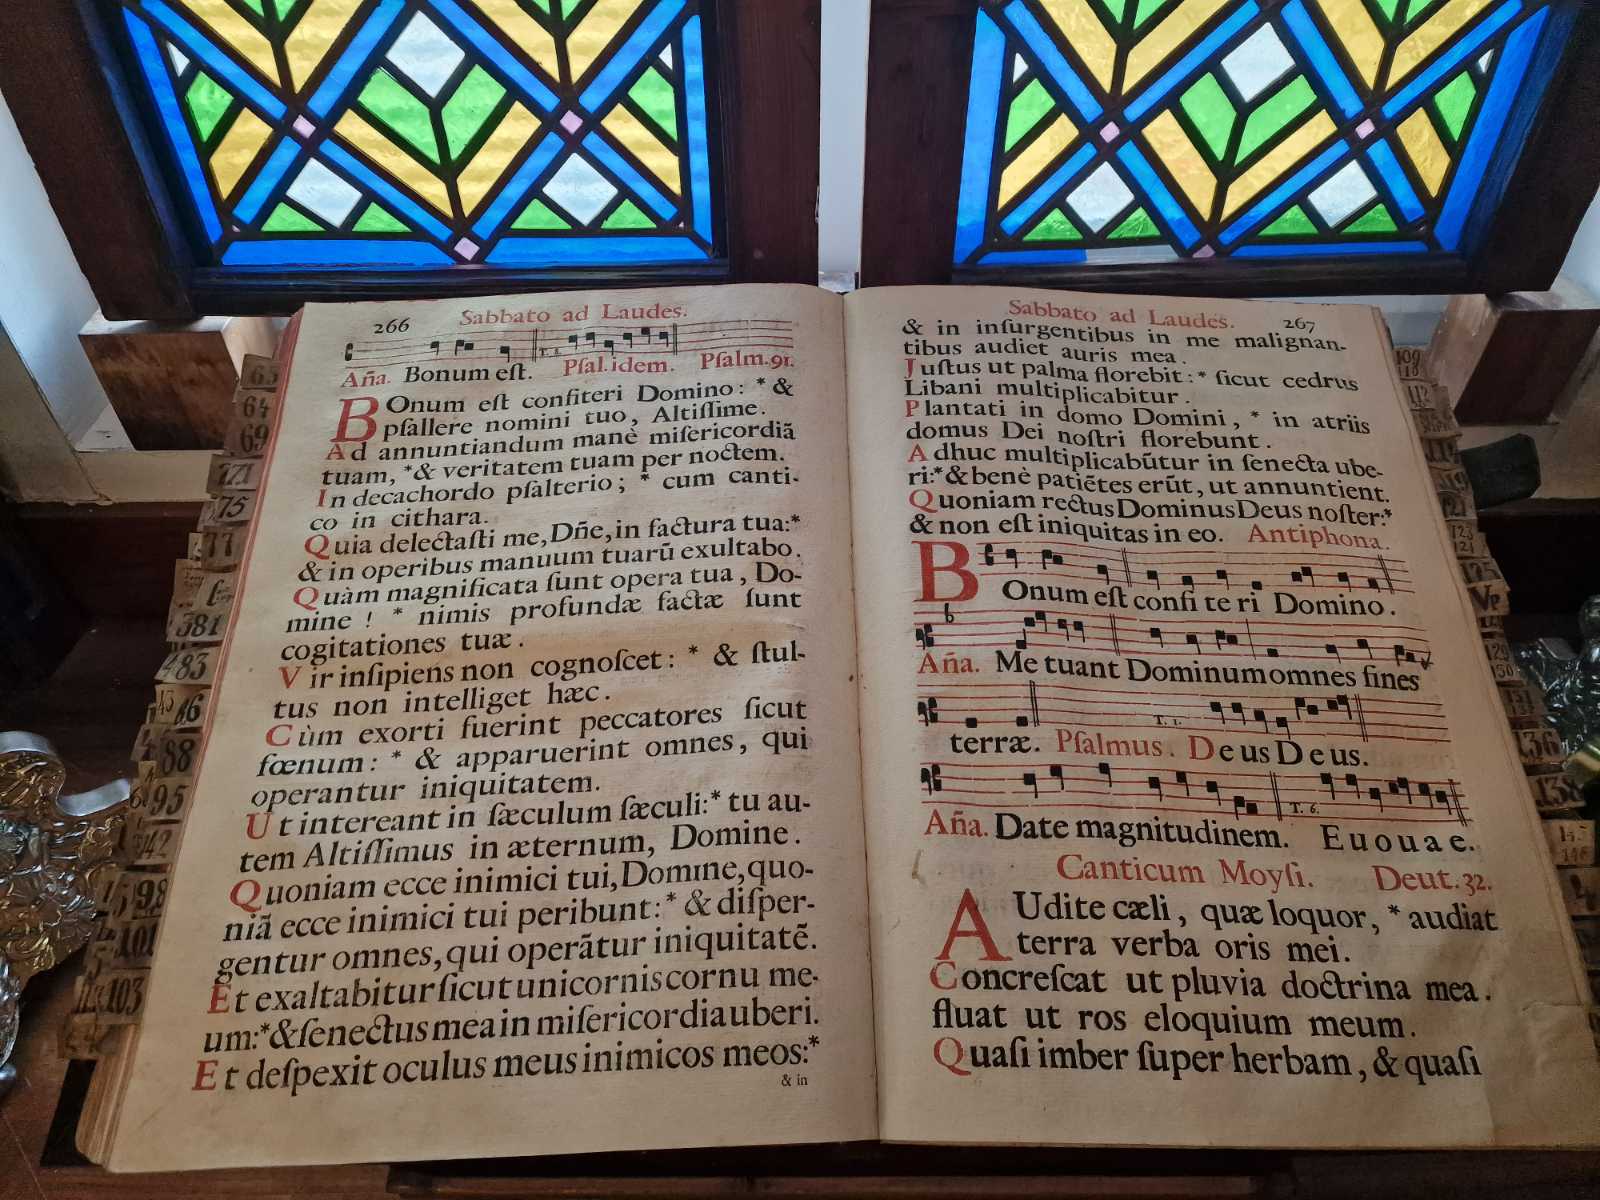 266 Sabbato ad Laudes.
T. 8.
Aña. Bonum eſt. Pſal. idem. Pſalm. 91.
BOnum eſt confiteri Domino: * &
pſallere nomini tuo, Altiſſime.
Ad annuntiandum manè miſericordiã
tuam, * & veritatem tuam per noctem.
In decachordo pſalterio; * cum canti-
co in cithara.
Quia delectaſti me, Dñe, in factura tua: *
& in operibus manuum tuarũ exultabo.
Quàm magnificata ſunt opera tua, Do-
mine! * nimis profundæ factæ ſunt
cogitationes tuæ.
Vir inſipiens non cognoſcet: * & ſtul-
tus non intelliget hæc.
Cùm exorti fuerint peccatores ſicut
fœnum: * & apparuerint omnes, qui
operantur iniquitatem.
Ut intereant in ſæculum ſæculi: * tu au-
tem Altiſſimus in æternum, Domine.
Quoniam ecce inimici tui, Domine, quo-
niã ecce inimici tui peribunt: * & diſper-
gentur omnes, qui operãtur iniquitatẽ.
Et exaltabitur ſicut unicornis cornu me-
um: * & ſenectus mea in miſericordia uberi.
Et deſpexit oculus meus inimicos meos: *
& in
Sabbato ad Laudes. 267
& in inſurgentibus in me malignan-
tibus audiet auris mea.
Juſtus ut palma florebit: * ſicut cedrus
Libani multiplicabitur.
Plantati in domo Domini, * in atriis
domus Dei noſtri florebunt.
Adhuc multiplicabũtur in ſenecta ube-
ri: * & benè patiẽtes erũt, ut annuntient.
Quoniam rectus Dominus Deus noſter: *
& non eſt iniquitas in eo. Antiphona.
BOnum eſt confi te ri Domino.
Aña. Me tuant Dominum omnes fines
T. 1.
terræ. Pſalmus. Deus Deus.
T. 6.
Aña. Date magnitudinem. Euouae.
Canticum Moyſi. Deut. 32.
AUdite cæli, quæ loquor, * audiat
terra verba oris mei.
Concreſcat ut pluvia doctrina mea.
fluat ut ros eloquium meum.
Quaſi imber ſuper herbam, & quaſi
65
64
69
71
75
77
381
483
86
88
95
42
98
101
103
109
118
112
114
121
123
125
129
131
136
138
145
146